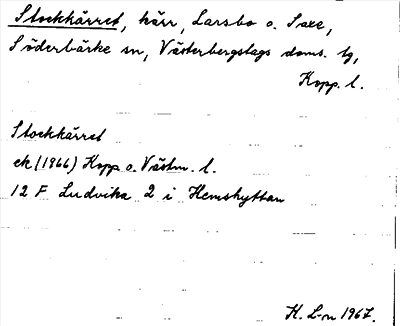 Stockkärret, kärr, Larsbo o. Saxe,
Söderbärke sn, Västerbergslags doms. tg,
Kopp. l.
Stockkärret
ek (1966) Kopp o. Västm. l.
12 F Ludvika 2 i Hemshyttan
H. L-n 1967.